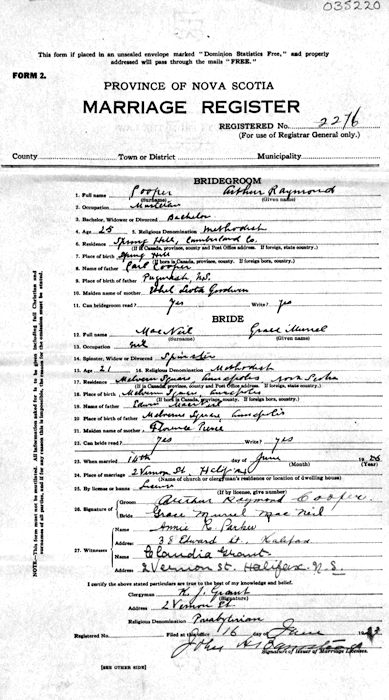 035220
This form if placed in an unsealed envelope marked "Dominion Statistics Free," and properly
addressed will pass through the mails "FREE."
FORM 2.
PROVINCE OF NOVA SCOTIA
MARRIAGE REGISTER
REGISTERED No. 2276
(For use of Registrar General only.)
County Town or District Municipality
BRIDEGROOM
1. Full name Cooper Arthur Raymond
(Surname) (Given name)
2. Occupation Musician
3. Bachelor, Widower or Divorced Bachelor
4. Age 25 5. Religious Denomination Methodist
6. Residence Spring Hill, Cumberland Co.
(If in Canada, province, county and Post Office address. If foreign, state country.)
7. Place of birth Spring Hill
(If born in Canada, province, county. If foreign born, country.)
8. Name of father Carl Cooper
9. Place of birth of father Pugwash, N.S.
10. Maiden name of mother Ethel Goodwin
11. Can bridegroom read? yes Write? yes
BRIDE
12. Full name MacNeil Grace Murrel
(Surname) (Given name)
13. Occupation nil
14. Spinster, Widow or Divorced Spinster
15. Age 21 16. Religious Denomination Methodist
17. Residence Melvern Square, Annapolis Nova Scotia
(If in Canada, province, county and Post Office address. If foreign, state country.)
18. Place of birth Melvern Square, Annapolis
(If born in Canada, province, county. If foreign born, country.)
19. Name of father Edwin MacNeil
20. Place of birth of father Melverne Square, Annapolis
21. Maiden name of mother Florence Pierce
22. Can bride read? yes Write? yes
23. When married 14th day of June 19
(Month) (Year)
24. Place of marriage 2 Vernon St. Halifax
(Name of church or clergyman's residence or location of dwelling house)
25. By license or banns License
(If by license, give number)
26. Signature of Groom Arthur Raymond Cooper.
Bride Grace Murrel MacNeil
27. Witnesses Name Annie R. Parker
Address 38 Edward St. Halifax
Name Claudia Grant
Address 2 Vernon St. Halifax, N.S.
I certify the above stated particulars are true to the best of my knowledge and belief.
Clergyman K. J. Grant
(Signature)
Address 2 Vernon St.
Religious Denomination Presbyterian
Registered No. Filed at this office 16 day of June 19
John
Signature of Issuer of Marriage Licenses.
(SEE OTHER SIDE)
NOTE—This form must not be mutilated. All information asked for is to be given including full Christian and
surnames of all parties, and if for any reason this is impossible, the reason for the omission must be stated.